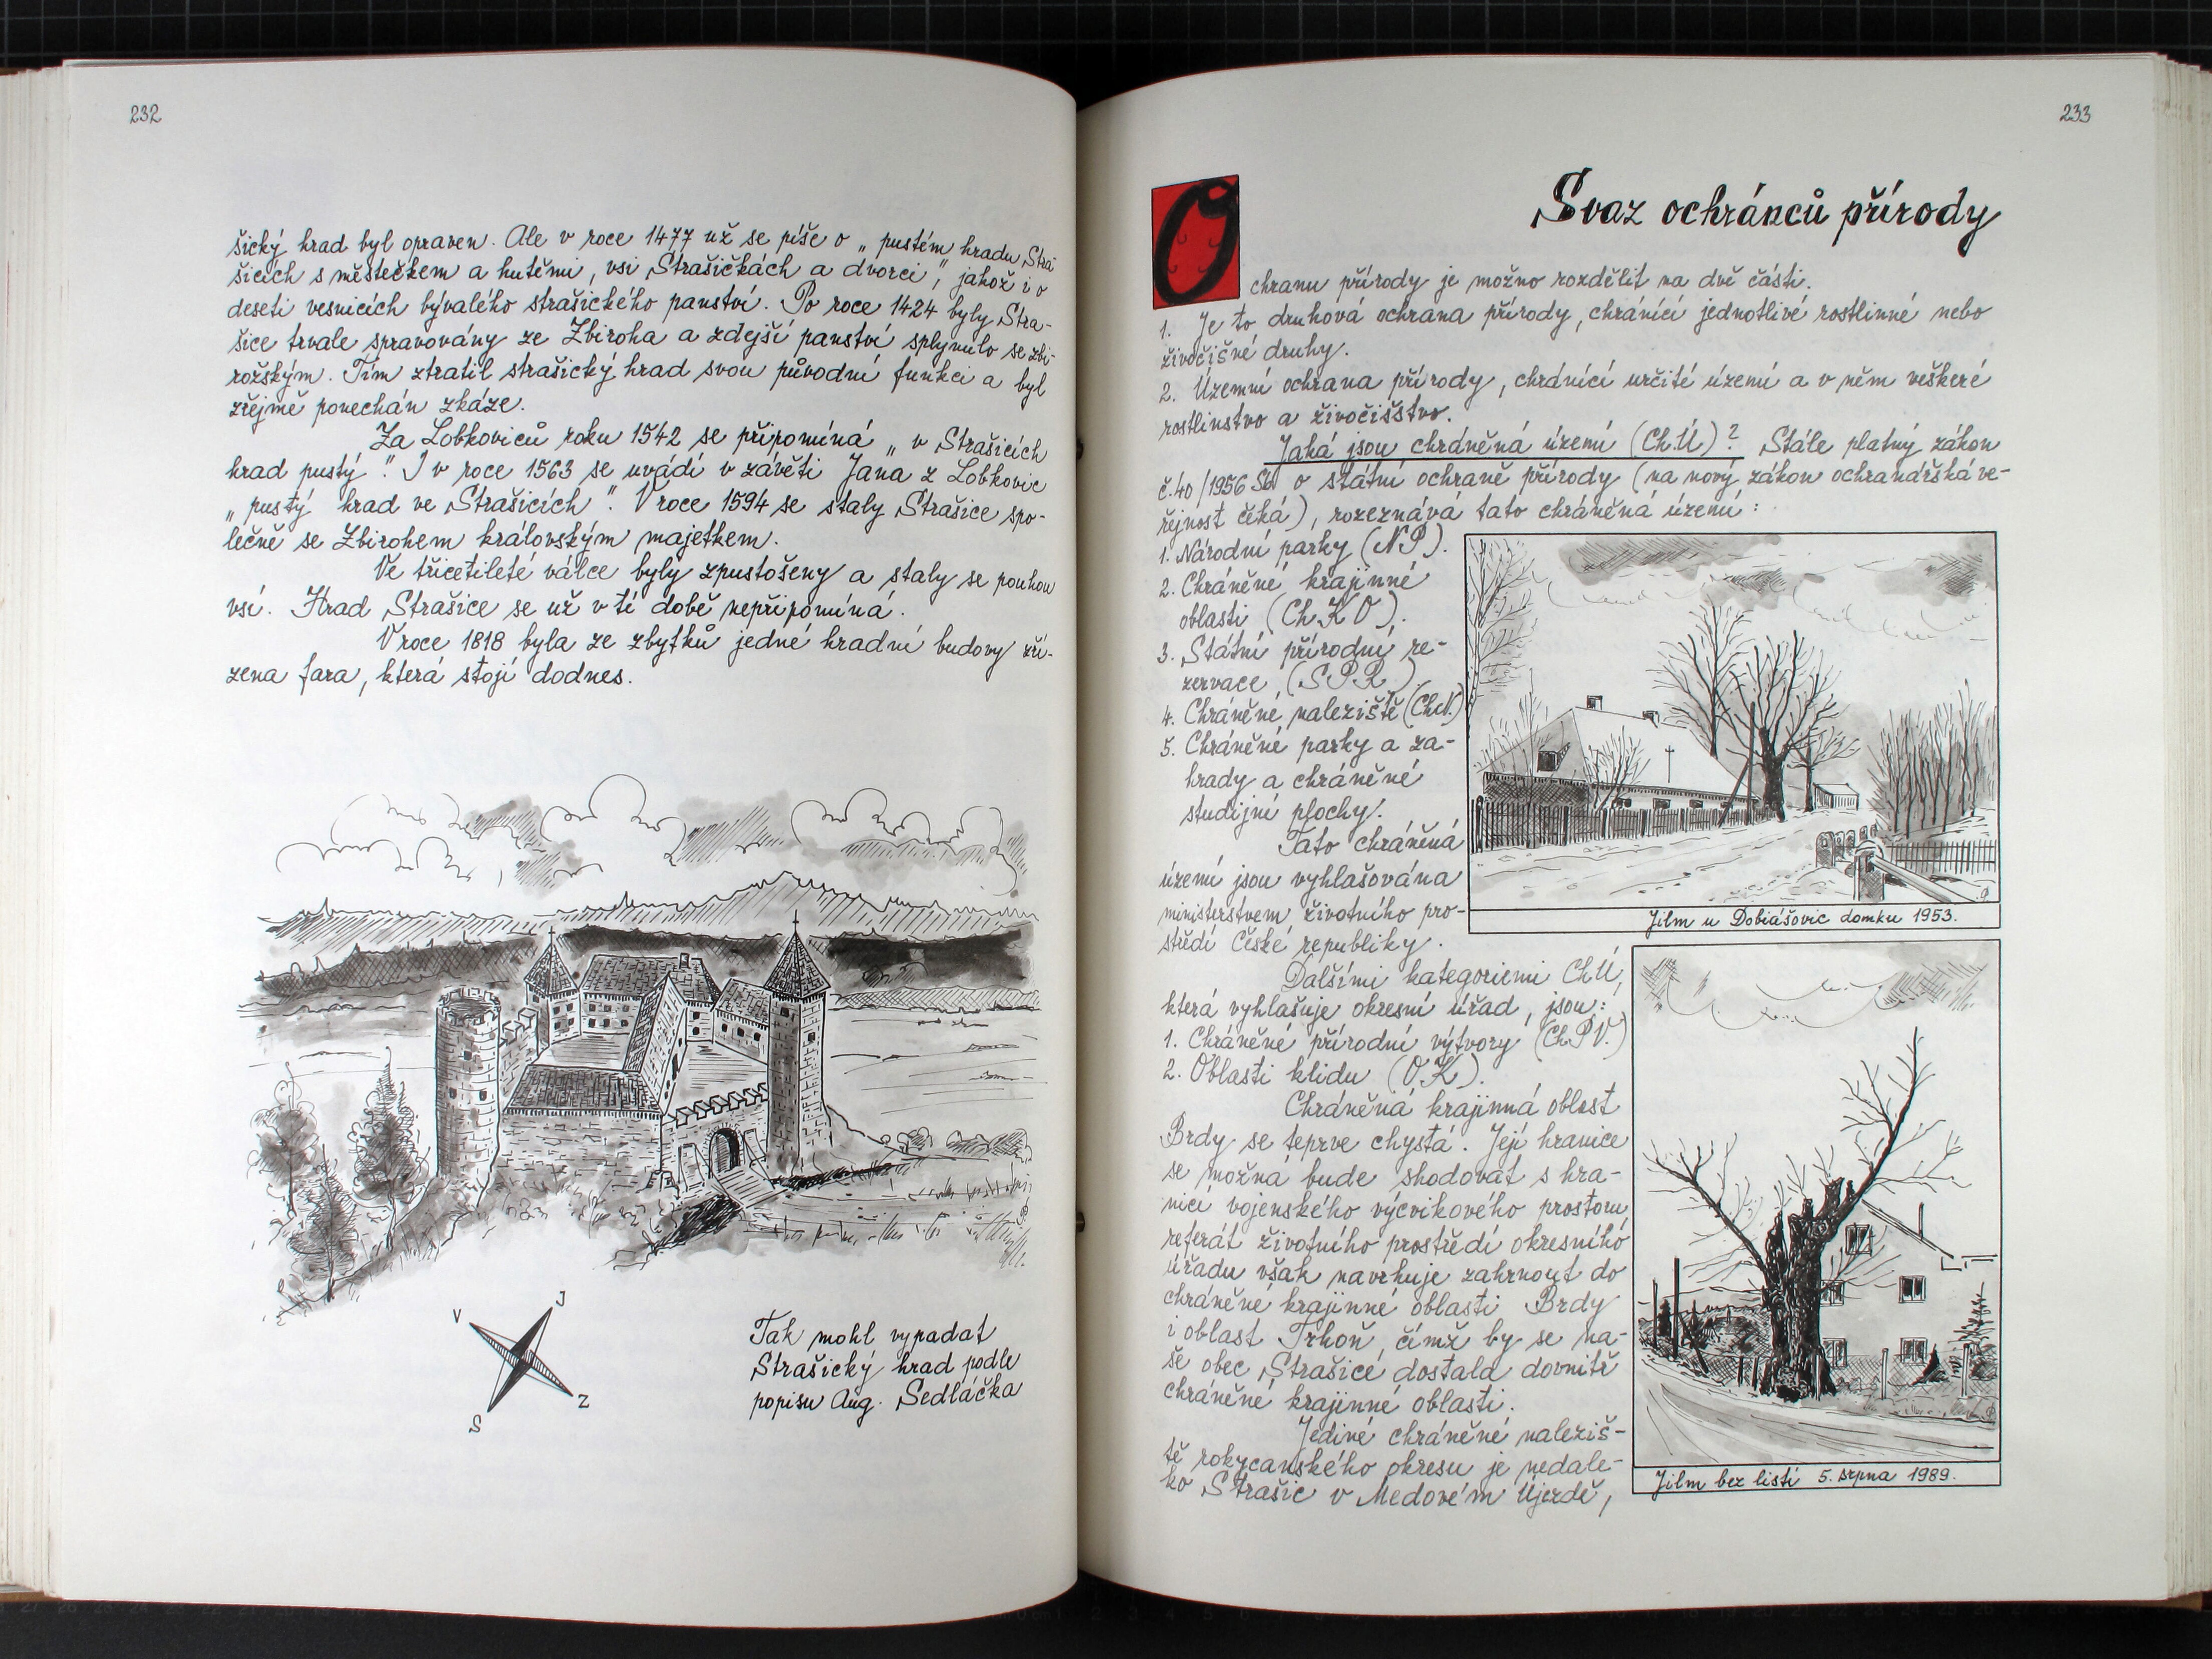 232
šický hrad byl opraven. Ale v roce 1477 už se píše o „pustém hradu Stra-
šicích s městečkem a hutěmi, vsi Strašičkách a dvorci", jakož i o
deseti vesnicích bývalého strašického panství. Po roce 1424 byly Stra-
šice trvale spravovány ze Zbiroha a zdejší panství splynulo se zbi-
rožským. Tím ztratil strašický hrad svou původní funkci a byl
zřejmě ponechán zkáze.
Za Lobkoviců roku 1542 se připomíná „v Strašicích
hrad pustý". I v roce 1563 se uvádí v závěti Jana z Lobkovic
„pustý hrad ve Strašicích". V roce 1594 se staly Strašice spo-
lečně se Zbirohem královským majetkem.
Ve třicetileté válce byly zpustošeny a staly se pouhou
vsí. Hrad Strašice se už v té době nepřipomíná.
V roce 1818 byla ze zbytků jedné hradní budovy zří-
zena fara, která stojí dodnes.
V
J
S
Z
Tak mohl vypadat
Strašický hrad podle
popisu Aug. Sedláčka
233
Svaz ochránců přírody
Ochranu přírody je možno rozdělit na dvě části.
1. Je to druhová ochrana přírody, chránící jednotlivé rostlinné nebo
živočišné druhy.
2. Územní ochrana přírody, chránící určité území a v něm veškeré
rostlinstvo a živočišstvo.
Jaká jsou chráněná území (Ch.Ú)? Stále platný zákon
č.40/1956 Sb o státní ochraně přírody (na nový zákon ochranářská ve-
řejnost čeká), rozeznává tato chráněná území:
1. Národní parky (NP).
2. Chráněné krajinné
oblasti (Ch K O).
3. Státní přírodní re-
zervace (SPR).
4. Chráněné naleziště (ChN)
5. Chráněné parky a za-
hrady a chráněné
studijní plochy.
Tato chráněná
území jsou vyhlašována
ministerstvem životního pro-
středí České republiky.
Jilm u Dobiášovic domku 1953.
Dalšími kategoriemi Ch.Ú,
která vyhlašuje okresní úřad, jsou:
1. Chráněné přírodní výtvory (ChPV.)
2. Oblasti klidu (OK).
Chráněná krajinná oblast
Brdy se teprve chystá. Její hranice
se možná bude shodovat s hra-
nicí vojenského výcvikového prostoru,
referát životního prostředí okresního
úřadu však navrhuje zahrnout do
chráněné krajinné oblasti Brdy
i oblast Trhoň, čímž by se na-
še obec Strašice dostala dovnitř
chráněné krajinné oblasti.
Jediné chráněné naleziš-
tě rokycanského okresu je nedale-
ko Strašic v Medovém Újezdě,
Jilm bez listí 5. srpna 1989.